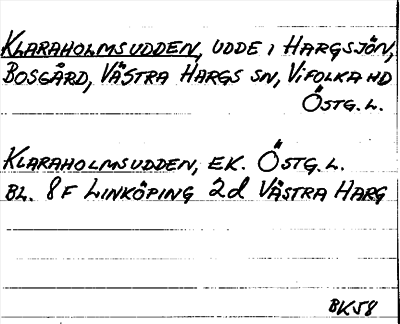 KLARAHOLMSUDDEN, UDDE I HARGSJÖN,
BOSGÅRD, VÄSTRA HARGS SN, VIFOLKA HD
ÖSTG. L.
KLARAHOLMSUDDEN, EK. ÖSTG. L.
BL. 8F LINKÖPING 2d VÄSTRA HARG
BK58